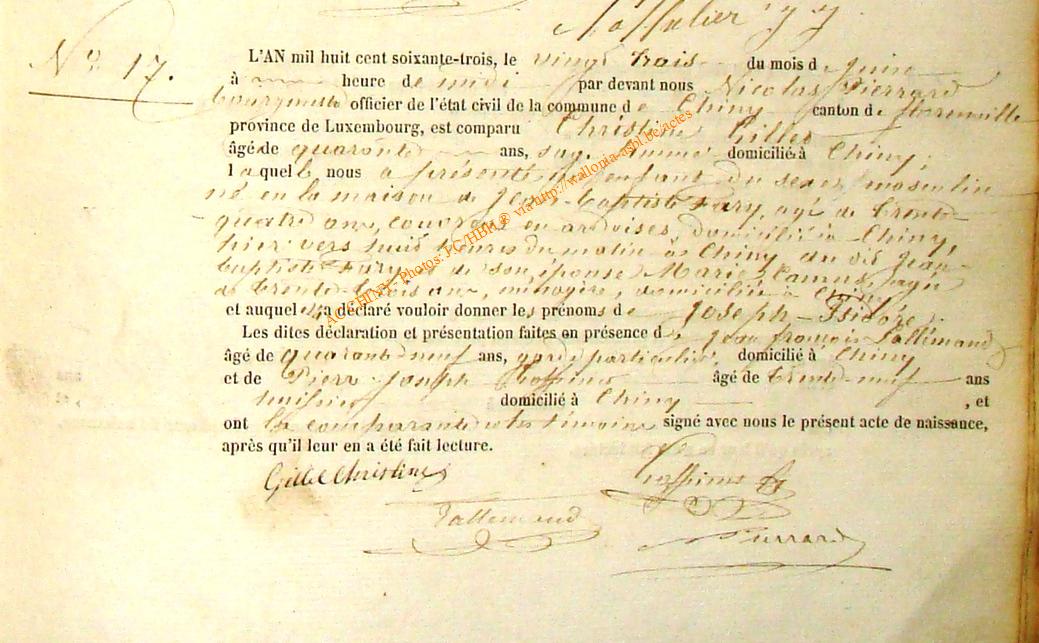 Nº 17.
L'AN mil huit cent soixante-trois, le vingt trois du mois de juin
à heure de midi par devant nous Nicolas Pierrard
bourgmestre officier de l'état civil de la commune de Chiny canton de Florenville
province de Luxembourg, est comparu Christine Gilles
âgé de quarante ans, sage femme domiciliée à Chiny;
laquelle nous a présenté un enfant du sexe masculin
né en la maison de Jean-Baptiste Fary, agé de trente
quatre ans, couvreur en ardoises, domicilié à Chiny,
hier vers huit heures du matin à Chiny du dit Jean-
Baptiste Fary et de son épouse Marie Camus, agée
de trente-trois ans, ménagère, domiciliée à Chiny
et auquel elle a déclaré vouloir donner les prénoms de Joseph-Isidore
Les dites déclaration et présentation faites en présence de Jean françois Lallemand
âgé de quarante neuf ans, garde particulier, domicilié à Chiny
et de Pierre Joseph âgé de trente-neuf ans
domicilié à Chiny , et
ont la comparante et les témoins signé avec nous le présent acte de naissance,
après qu'il leur en a été fait lecture.
Gilles Christine
Lallemand
Pierrard
AC/CHINY - Photos: J-C/HBH® via http://wallonia-asbl.be/actes